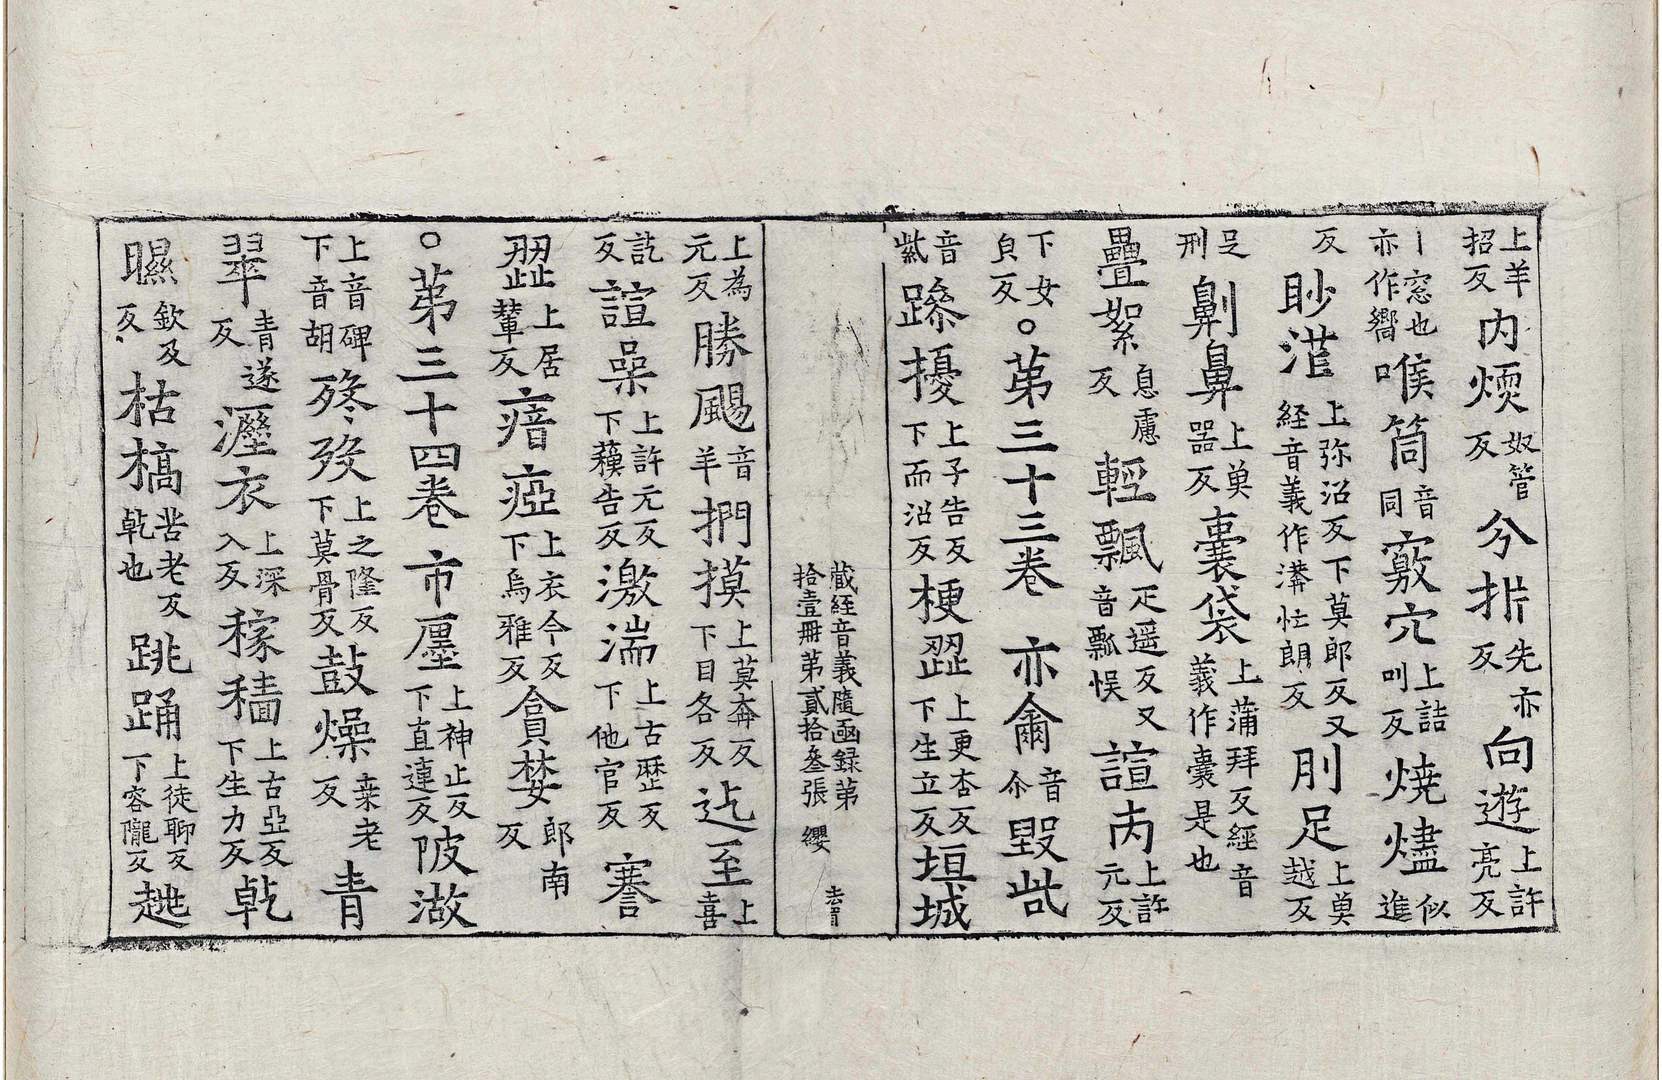 上羊招反内煗奴管反兮㭊先亦反向遊上許亮反
丨窓也亦作嚮喉筒音同竅穴上詰叫反燒燼似進
反眇漭上弥沼反下莫郎反又経音義作漭忙朗反刖足上奠越反
足刑劓鼻上奠器反囊袋上蒲拜反經音義作囊是也
疊絮息慮反輕飄疋遥反又音瓢悮諠丙上許元反
下女貟反○苐三十三卷 亦龠音尒毀呰
音紫躁擾上子告反下而沼反梗澀上更杏反下生立反垣城
藏経音義隨函録苐拾壹冊苐貳拾叄張 纓 去冒
上為元反勝颺音羊捫摸上莫奔反下目各反迄至上喜
訖反諠譟上許元反下蘓告反激湍上古歷反下他官反 謇
澀上居輦反瘖瘂上衣今反下烏雅反貪婪郎南反
○苐三十四卷 市㕓上神止反下直連反陂湖
上音碑下音胡殀歿上之隆反下莫骨反鼓燥桒老反青
翠青遂反溼衣上深入反稼穡上古亞反下生力反乾
㬤欽及反枯槁苦老反乾也跳踊上徒聊反下容隴反趒